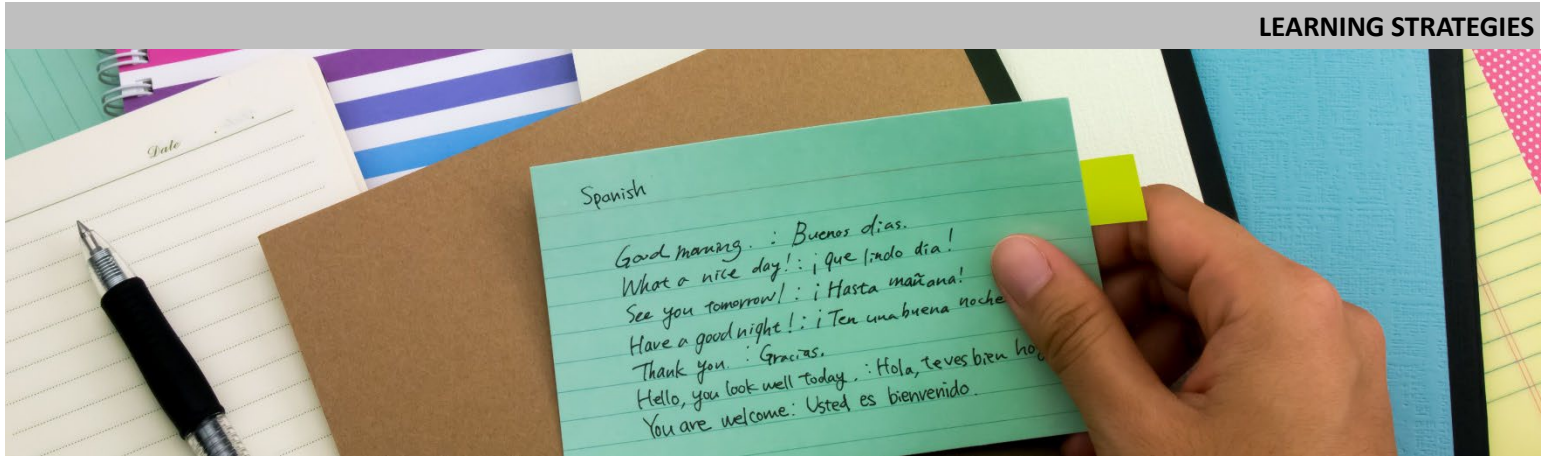 LEARNING STRATEGIES
Date
Spanish
Good morning. : Buenos dias.
What a nice day! : ¡que lindo dia!
See you tomorrow! : ¡Hasta mañana!
Have a good night! : ¡Ten una buena noche
Thank you. : Gracias.
Hello, you look well today. : Hola, te ves bien
You are welcome: Usted es bienvenido.